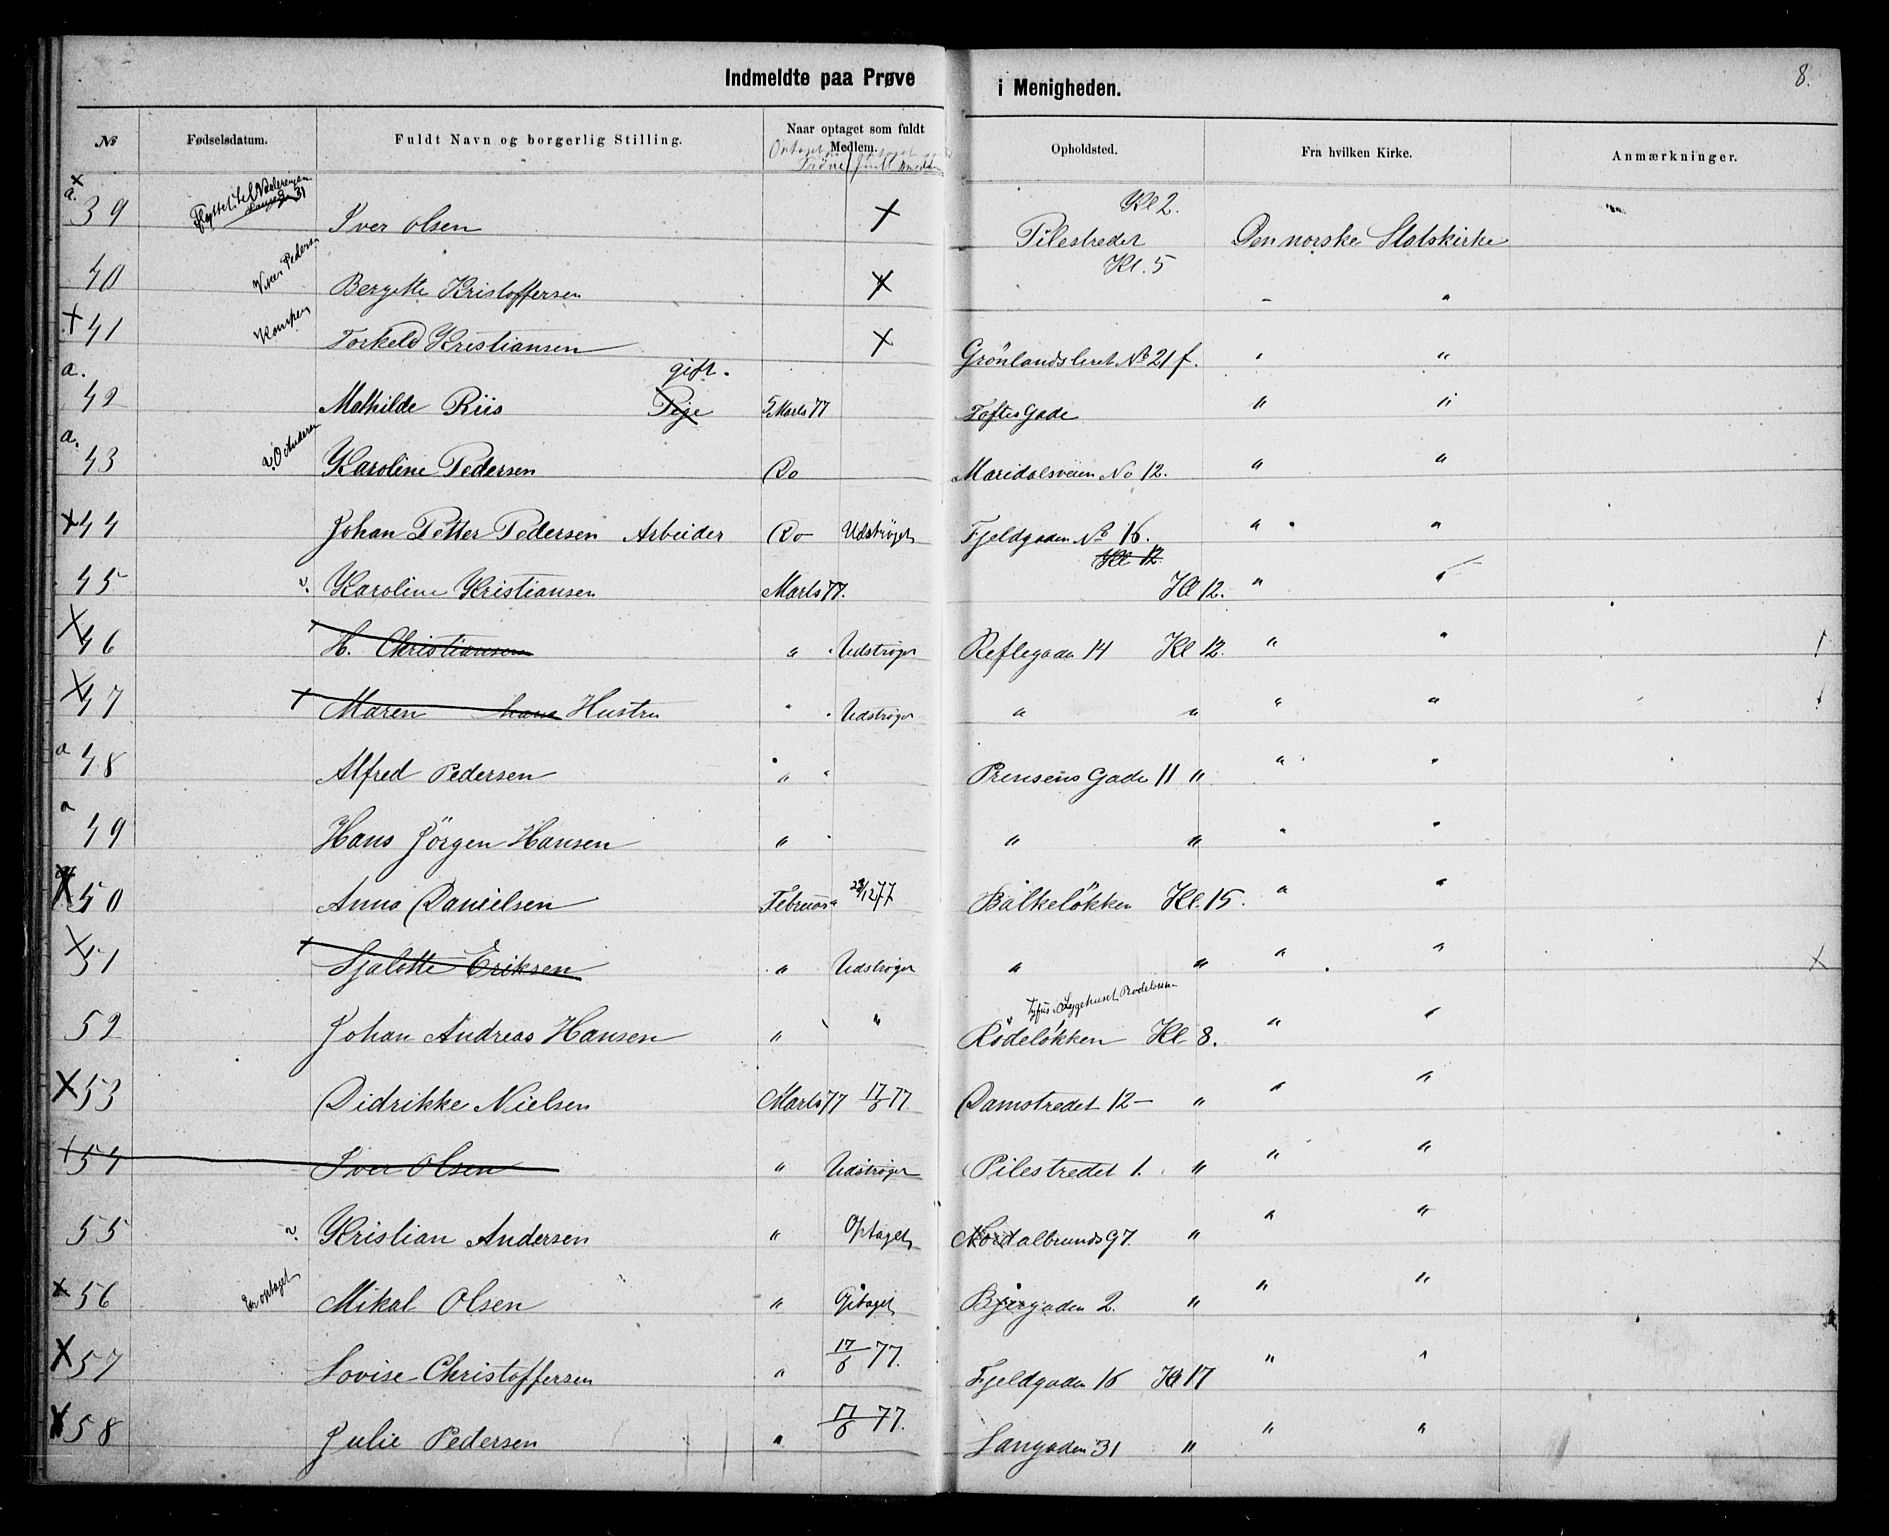 Indmeldte paa Prøve i Menigheden. 8.
№ Fødselsdatum. Fuldt Navn og borgerlig Stilling. Naar optaget som fuldt Medlem. Opholdsted. Fra hvilken Kirke. Anmærkninger.
Prøve
Kl 2.
a. × 39 Flyttet til 31 Iver Olsen × Pilestredet Den norske Statskirke
Kl. 5
40 Pedersen Bergitte Kristoffersen × " "
× 41 Torkeld Kristiansen × Grönlandsleret No 21 f. " "
gift.
a. 42 Mathilde Riis Pige 5 Marts 77 Toftes Gade " "
a. 43 Karoline Pedersen Do Maridalsveien No 12. " "
× 44 Johan Petter Pedersen Arbeider Do Udstrøget Fjeldgaden No 16. " "
Kl 12.
45 Karoline Kristiansen Marts 77. Kl 12. " "
× 46 H. Christiansen " Udstrøget Reflegaden 14 Kl 12. " "
× 47 Maren hans Hustru " Udstrøget " " " "
a 48 Alfred Pedersen " " Prensens Gade 11 " " "
a 49 Hans Jörgen Hansen " " " " "
× 50 Anna Danielsen Februar 23/12 77 Bålkelökken Kl. 15. " "
× 51 Sjalotte Eriksen " Udstrøget " " " " ×
52 Johan Andreas Hansen " " Rodelökken Kl 8. " "
× 53 Didrikke Nielsen Marts 77 17/6 77. Damstredet 12 — " " "
+ 54 Iver Olsen " Udstrøget Pilestredet 1. " " "
55 Kristian Andersen " Optaget Nordalbrunds 97. " " "
× 56 Er optaget Mikal Olsen " Optaget Bjergaden 2. " " "
× 57 Lovise Christoffersen " 17/6 77. Fjeldgaden 16 Kl 17 " "
× 58 Julie Pedersen " 17/6 77. Langaden 31 " " "